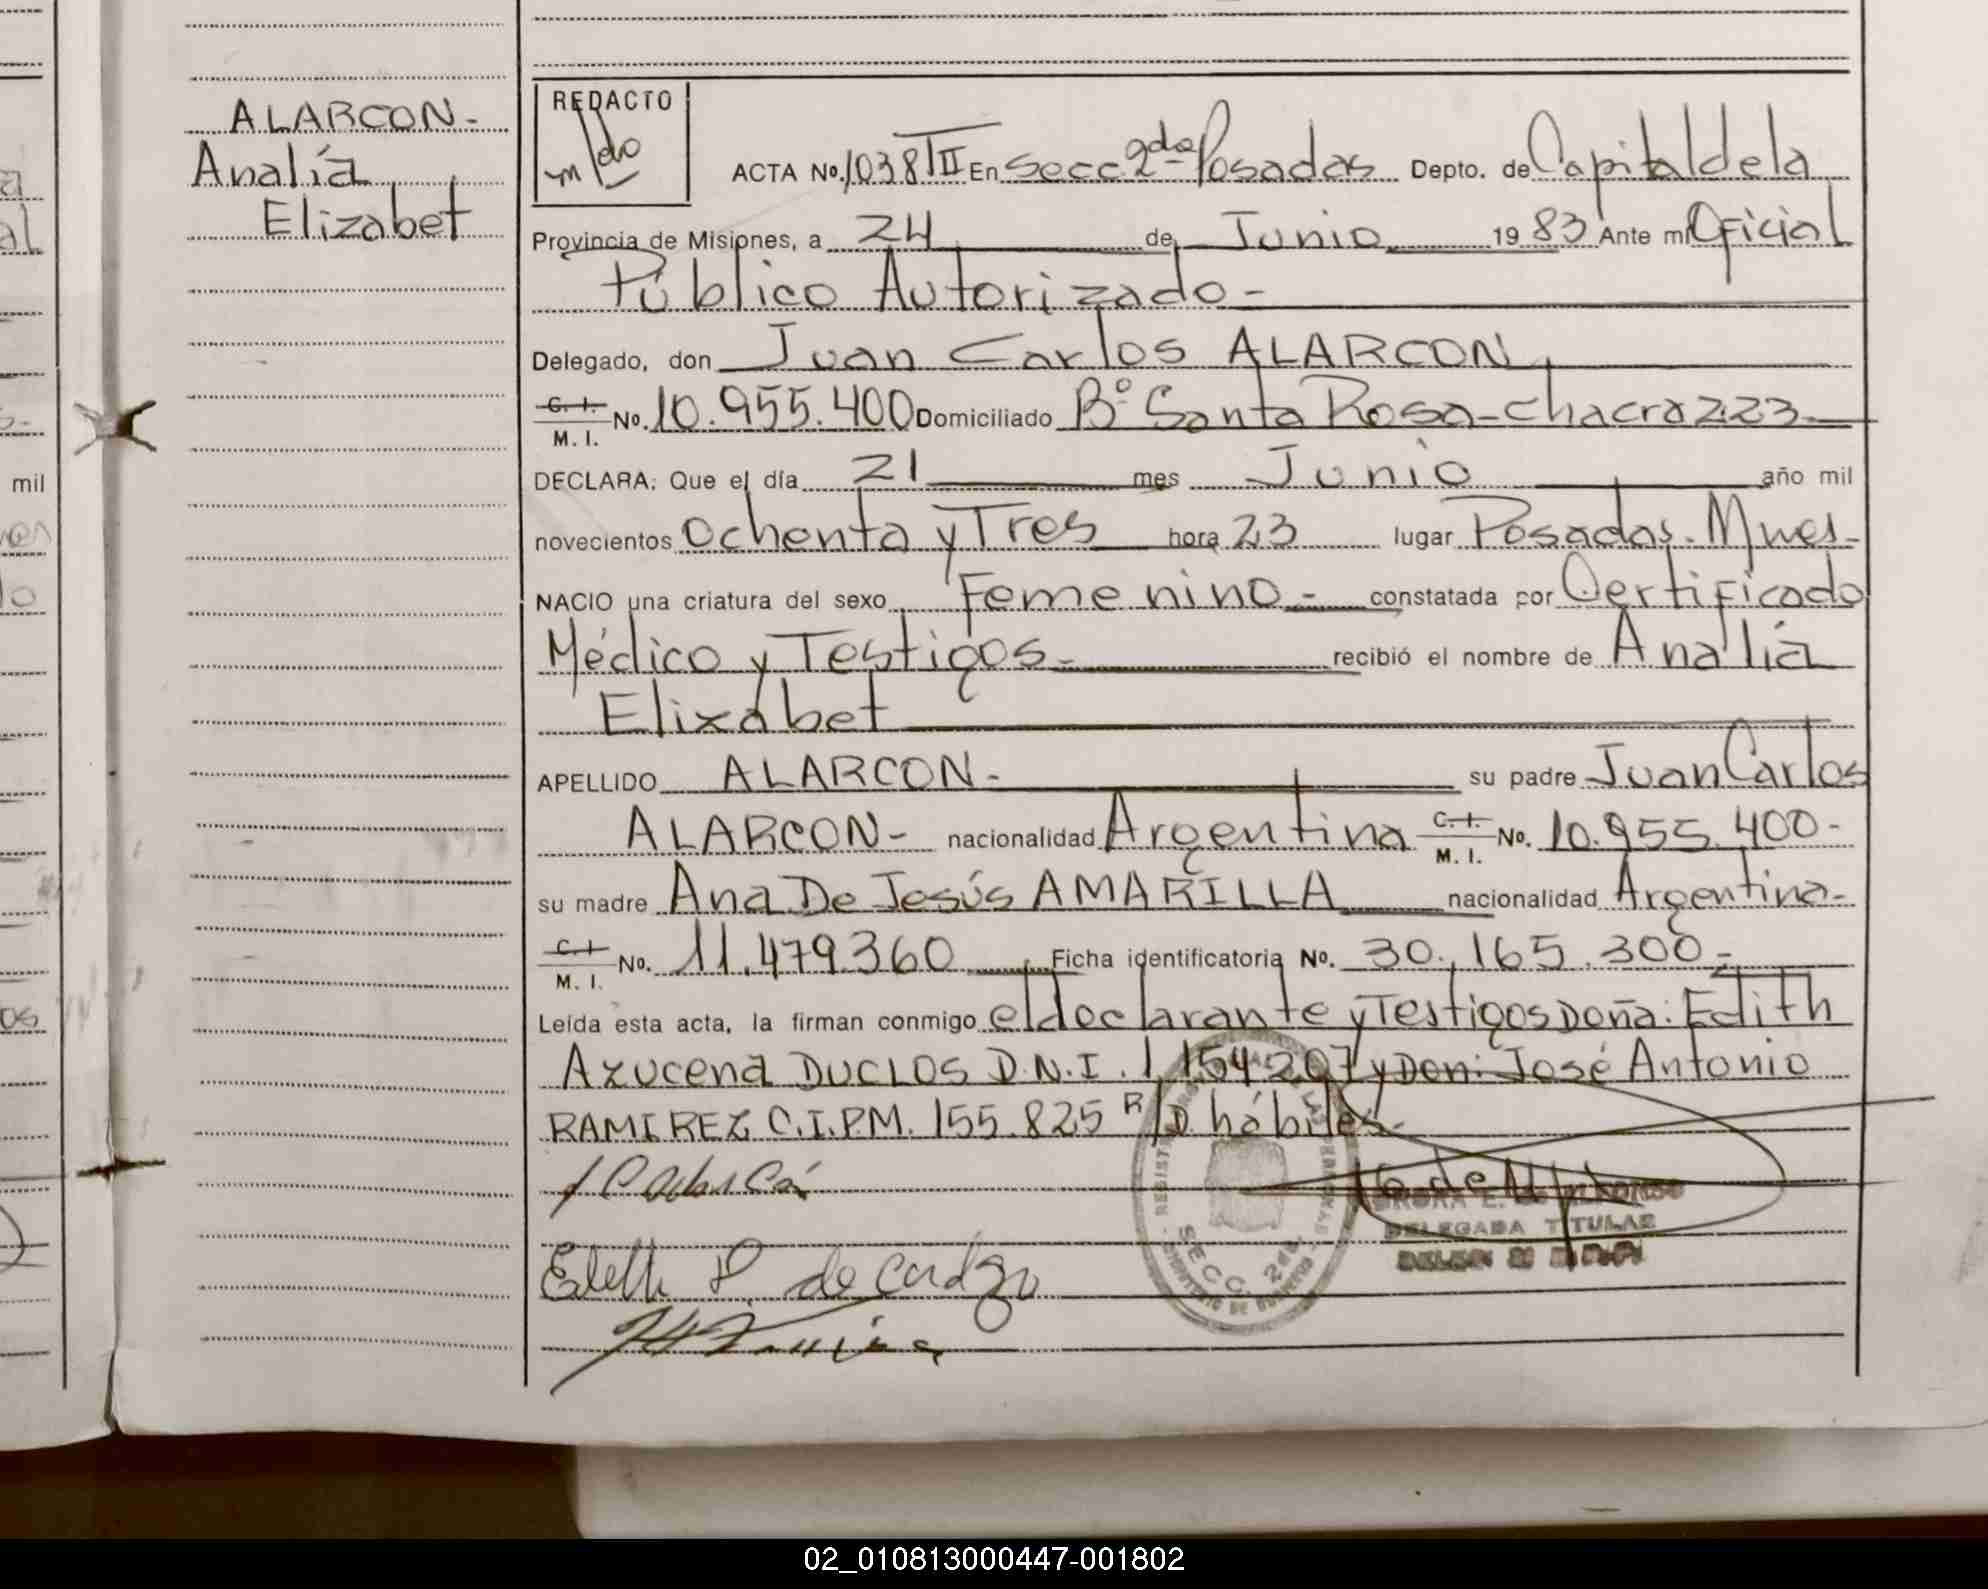 ALARCON-
Analía
Elizabet
REDACTO
ACTA No. 1038 TII En Secc 2da Posadas Depto. de Capital de la
Provincia de Misiones, a 24 de Junio 1983 Ante mi Oficial
Público Autorizado-
Delegado, don Juan Carlos ALARCON
C. I.
M. I. No. 10.955.400 Domiciliado Bº Santa Rosa-chacra 223-
DECLARA: Que el día 21 mes Junio año mil
novecientos Ochenta y Tres hora 23 lugar Posadas. Mnes-
NACIO una criatura del sexo Femenino- constatada por Certificado
Médico y Testigos- recibió el nombre de Analía
Elizabet
APELLIDO ALARCON- su padre Juan Carlos
ALARCON- nacionalidad Argentina C. I.
M. I. No. 10.955.400-
su madre Ana De Jesús AMARILLA nacionalidad Argentina-
C. I.
M. I. No. 11.479.360 Ficha identificatoria No. 30.165.300-
Leída esta acta, la firman conmigo el declarante y Testigos Doña: Edith
Azucena DUCLOS D.N.I. 1.154.207 y Don: José Antonio
RAMIREZ C.I.P.M. 155.825 R/D hábiles-
SECC. 2da.
DELEGADA TITULAR
mil
02_010813000447-001802